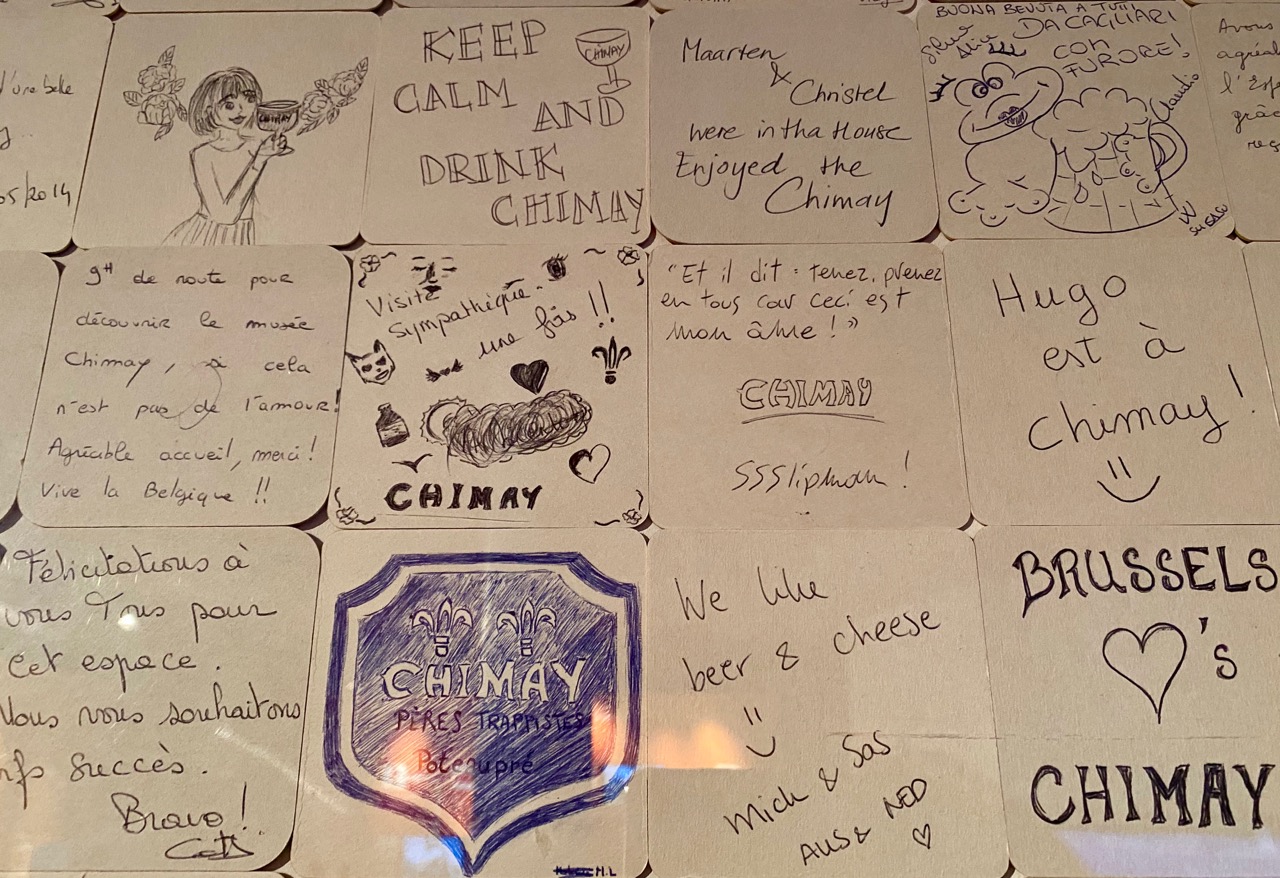 d'une belle
05/2014
CHIMAY
KEEP
CHIMAY
CALM AND
DRINK
CHIMAY
Maarten
&
Christel
were in tha House
Enjoyed the
Chimay
BUONA BEVUTA A TUTTI
DA CAGLIARI
CON
FURORE!
Claudio
Avous
agréa
l'Esp
grâc
reg
9H de route pour
découvrir le musée
Chimay, si cela
n'est pas de l'amour!
Agréable accueil, merci!
Vive la Belgique !!
Visite
sympathique.
une fois !!
CHIMAY
"Et il dit : tenez, prenez
en tous car ceci est
mon âme ! »
CHIMAY
SSSlipman !
Hugo
est à
Chimay !
Félicitations à
vous Tous pour
cet espace.
Nous vous souhaitons
succès.
Bravo!
CHIMAY
PÈRES TRAPPISTES
Poteaupré
M.L
We like
beer & cheese
Mich & Sas
AUS & NED
BRUSSELS
'S
CHIMAY